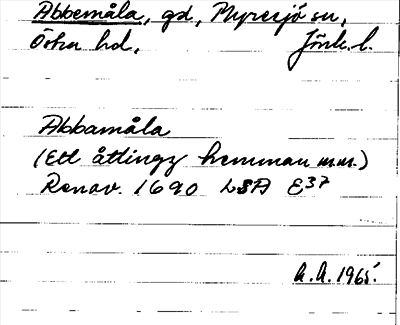 Abbemåla, gd, Myresjö sn,
Östra hd, Jönk. l.
Abbamåla
(Ett åttingz hemman m.m.)
Renov. 1690 LSA E37
A.A. 1965.